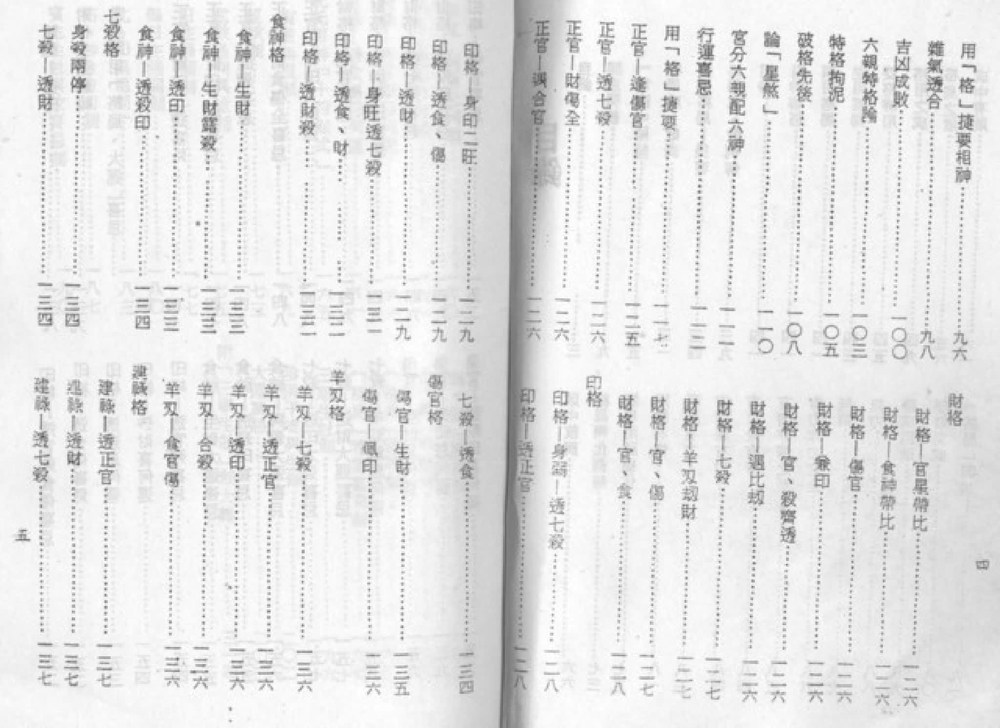 用「格」捷要相神……九六
雜氣透合……九八
吉凶成敗……一〇〇
六親特格論……一〇三
特格拘泥……一〇五
破格先後……一〇八
論「星煞」……一一〇
宮分六親配六神……一一一
行運喜忌……一一二
用「格」捷要……一一七
正官—逢傷官……一二五
正官—透七殺……一二六
正官—財傷全……一二六
正官—遇合官……一二六
財格
財格—官星帶比……一二六
財格—食神帶比……一二六
財格—傷官……一二六
財格—兼印……一二六
財格—官、殺齊透……一二六
財格—遇比刼……一二六
財格—七殺……一二七
財格—羊刄刼財……一二七
財格—官、傷……一二七
財格—官、食……一二八
印格
印格—身弱—透七殺……一二八
印格—透正官……一二八
四
印格—身印二旺……一二九
印格—透食、傷……一二九
印格—透財……一二九
印格—身旺透七殺……一三一
印格—透食、財……一三二
印格—透財殺……一三二
食神格
食神—生財……一三三
食神—生財露殺……一三三
食神—透印……一三三
食神—透殺印……一三四
七殺格
身殺兩停……一三四
七殺—透財……一三四
七殺—透食……一三四
傷官格
傷官—生財……一三五
傷官—佩印……一三六
羊刄格
羊刄—七殺……一三六
羊刄—透正官……一三六
羊刄—透印……一三六
羊刄—合殺……一三六
羊刄—食官傷……一三六
建祿格
建祿—透正官……一三七
建祿—透財……一三七
建祿—透七殺……一三七
五